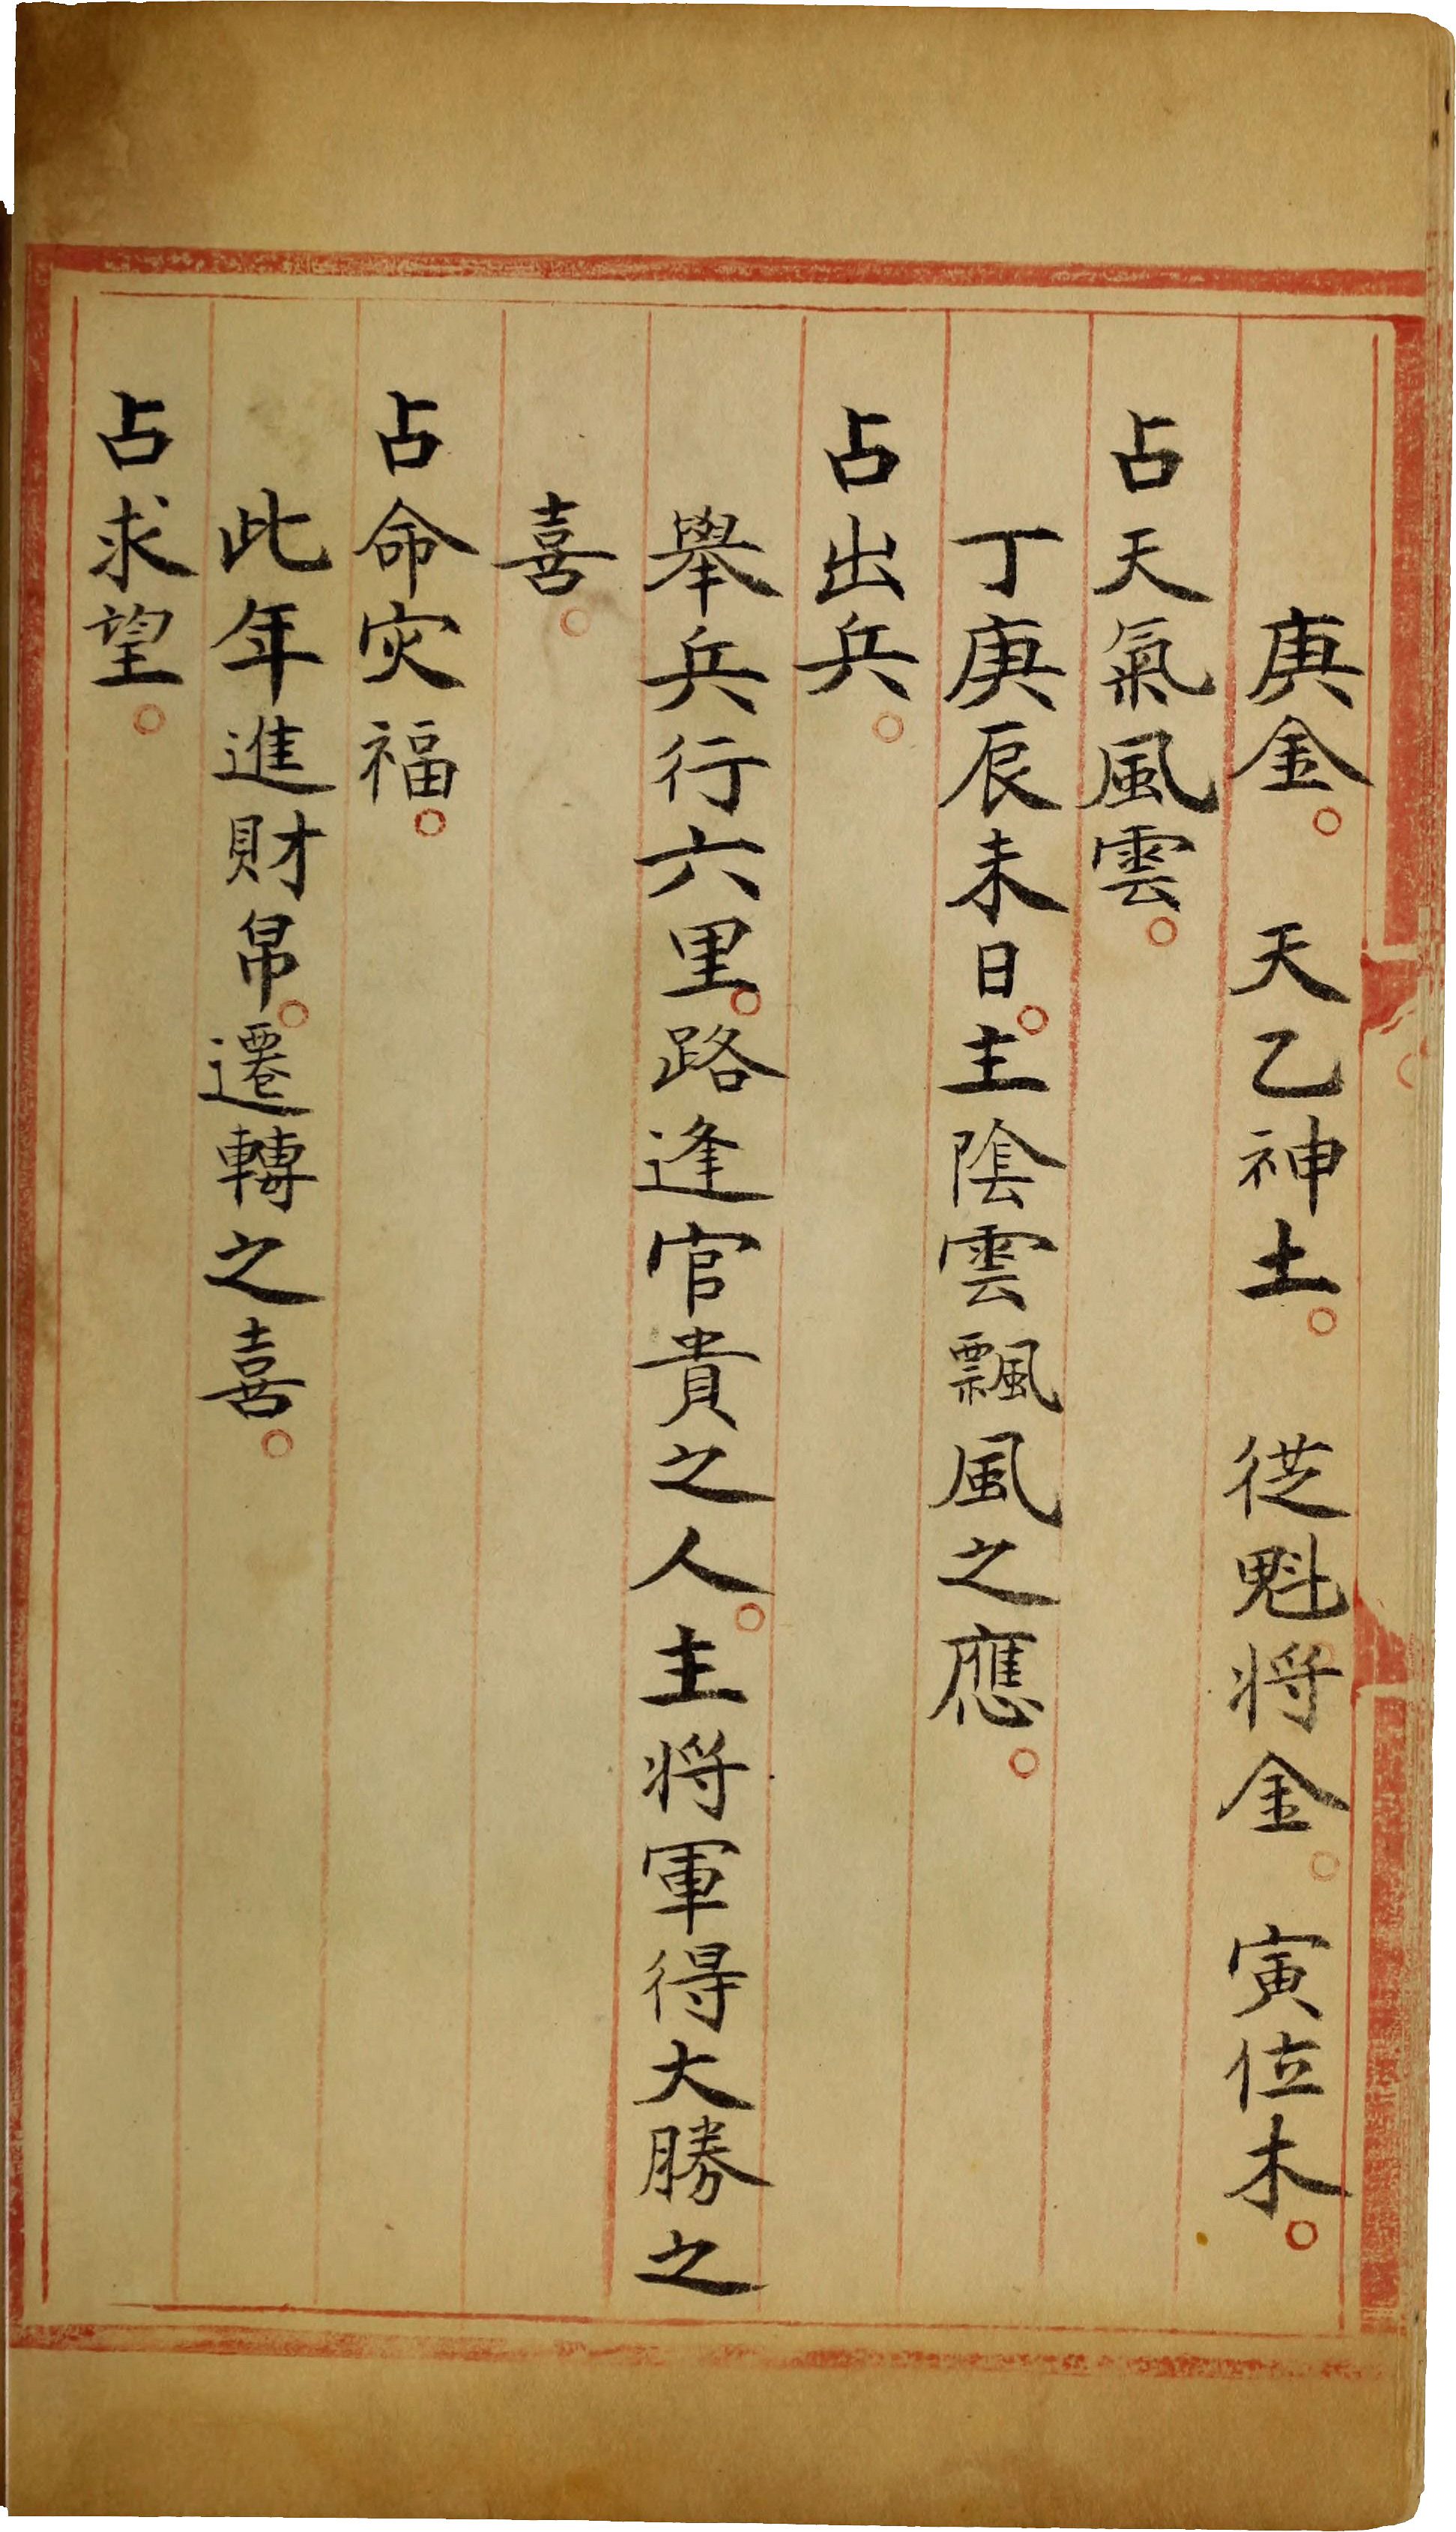 庚金。　天乙神土。　從魁将金。　寅位木。
占天氣風雲。
丁庚辰未日。主陰雲飄風之應。
占出兵。
舉兵行六里。路逢官貴之人。主将軍得大勝之
喜。
占命灾福。
此年進財帛。遷轉之喜。
占求望。